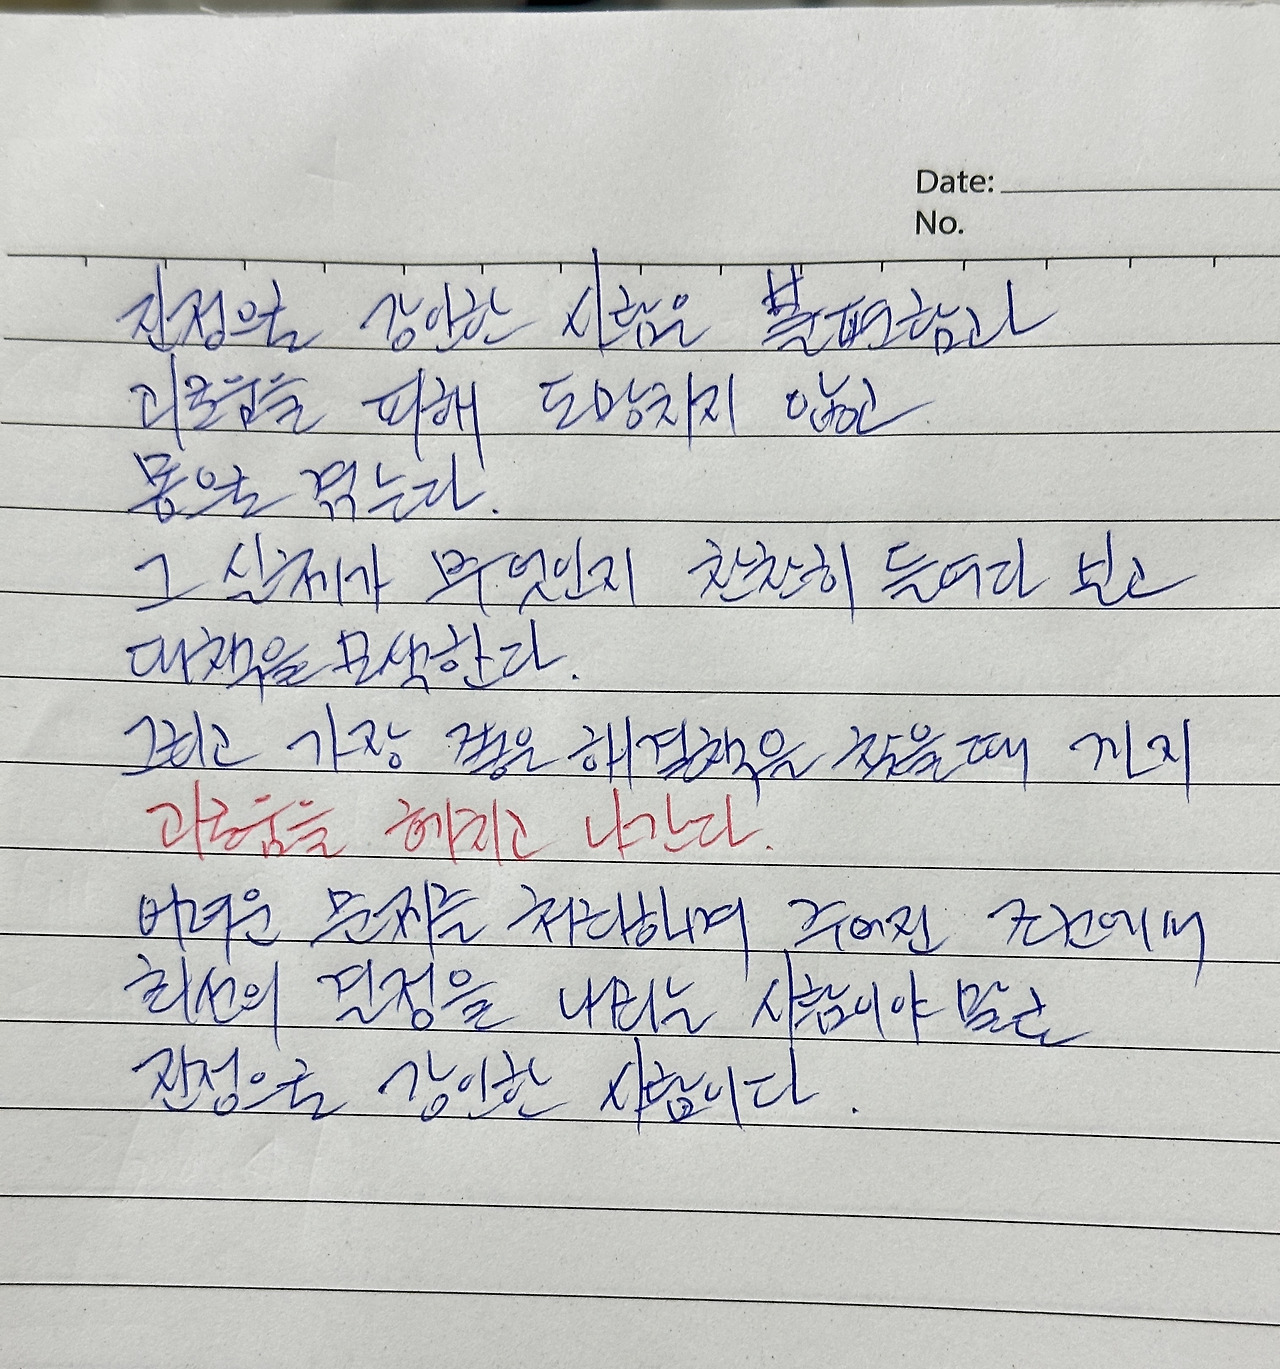 Date:
No.
진정으로 강인한 사람은 불편함과
괴로움을 피해 도망치지 않고
몸으로 겪는다.
그 실체가 무엇인지 찬찬히 들여다 보고
대책을 모색한다.
그리고 가장 좋은 해결책을 찾을때 까지
괴로움을 헤치고 나간다.
어려운 문제를 처리하며 주어진 조건에서
최선의 결정을 내리는 사람이야 말로
진정으로 강인한 사람이다.